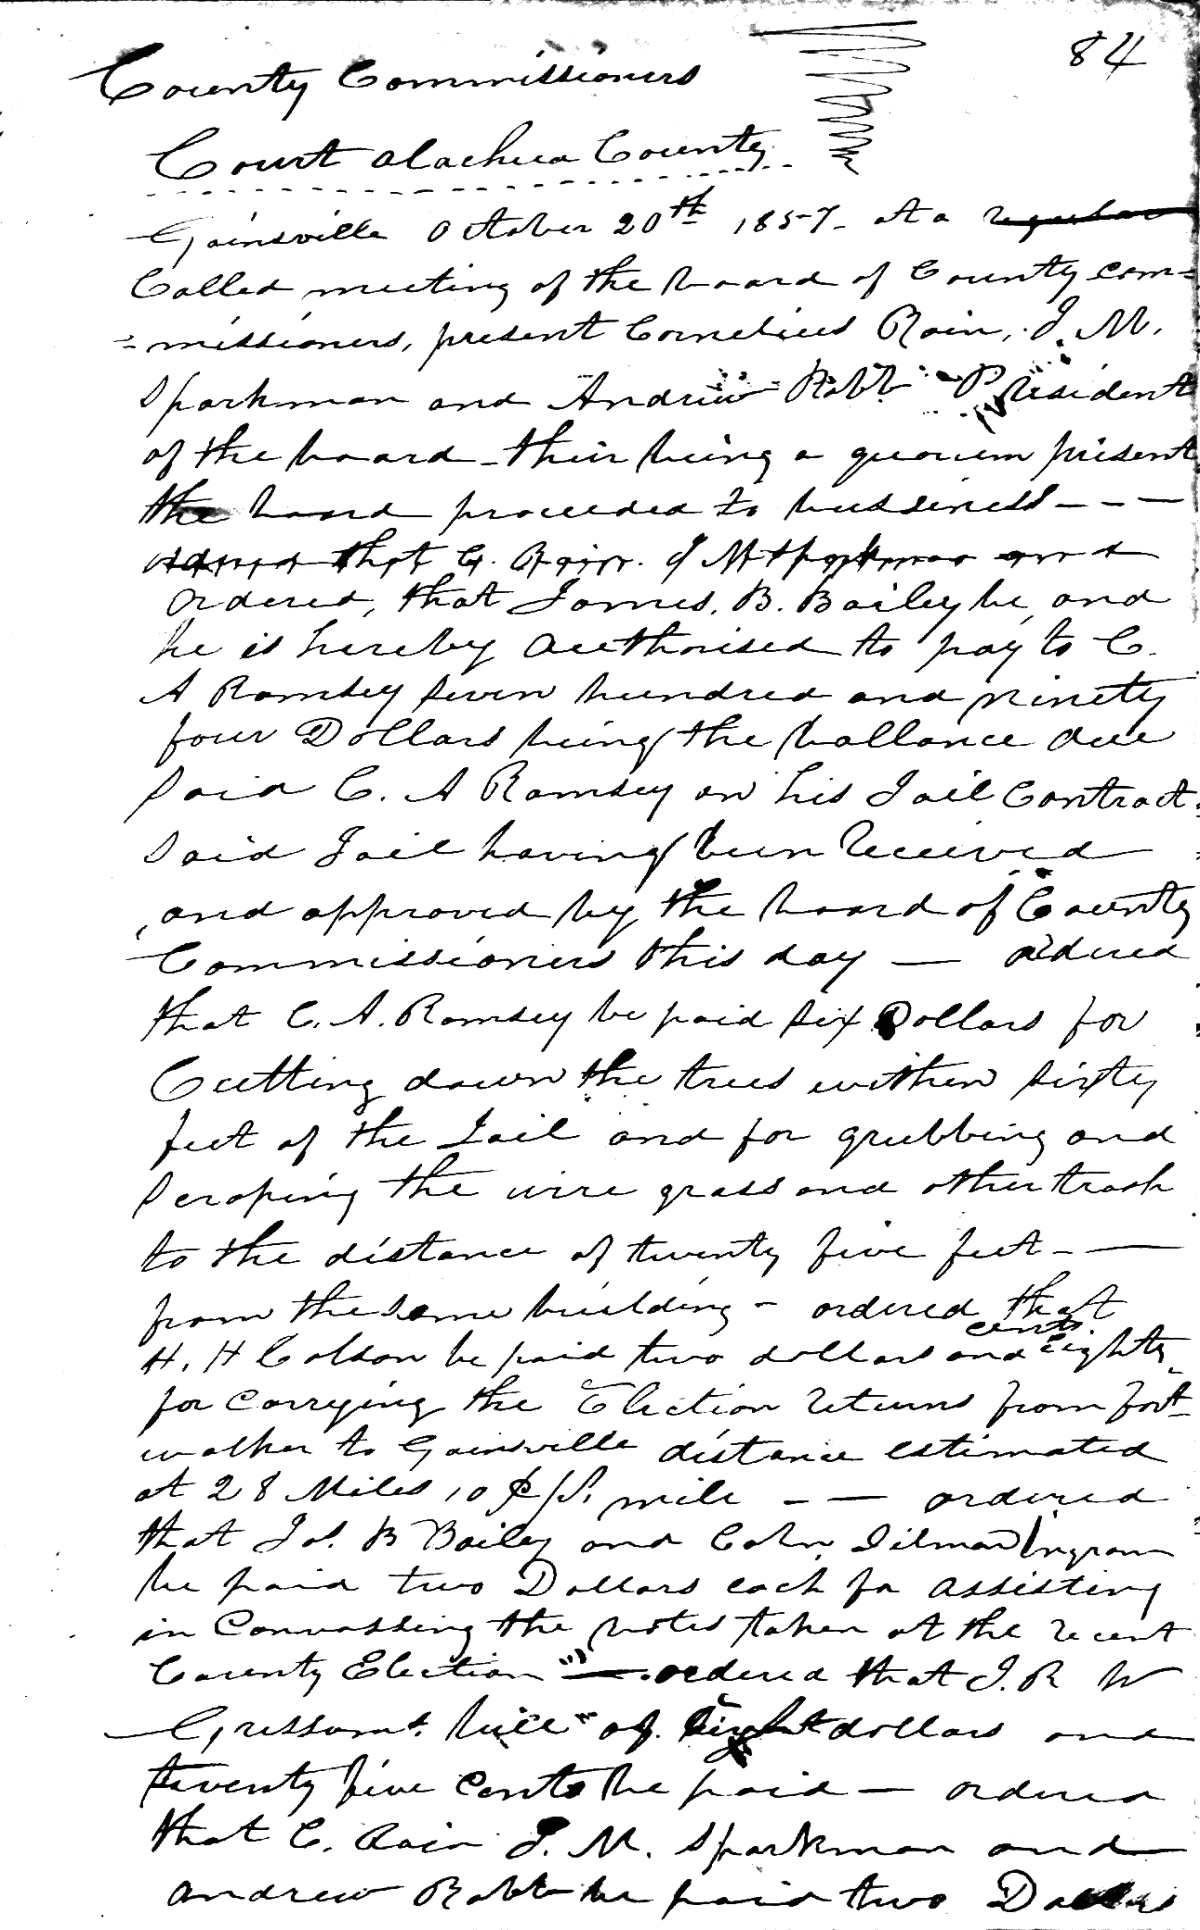 84
County Commissioners
Court Alachua County
Gainsville October 20th 1857 - at a regular
Called meeting of the board of County com=
=missioners, present Cornelius Rain, J. M.
Sparkman and Andrew Robb President
of the board - their being a quorum present
the board proceeded to bussiness - - -
ordered that C. Rain. J M Sparkman and
Ordered, that James. B. Bailey be, and
he is hereby authorised to pay to C.
A Ramsey seven hundred and ninety
four Dollars being the ballance due
said C. A Ramsey on his Jail Contract.
said Jail having been received
and approved by the board of County
Commissioners this day — ordered
that C. A. Ramsey be paid six Dollars for
Cutting down the trees within sixty
feet of the Jail and for grubbing and
scraping the wire grass and other trash
to the distance of twenty five feet - —
from the same building - ordered that
H. H Colson be paid two dollars and eighty cents
for carrying the Election returns from fort
walker to Gainsville distance estimated
at 28 Miles 10 ¢ pr. mile - — ordered
that Jas. B Bailey and Tilman Ingram
be paid two Dollars each for assisting
in Canvassing the votes taken at the recent
County Election — ordered that J. R W
bill of eight dollars and
twenty five cents be paid — ordered
that C. Rain J. M. Sparkman and
Andrew Robb be paid two Dollars